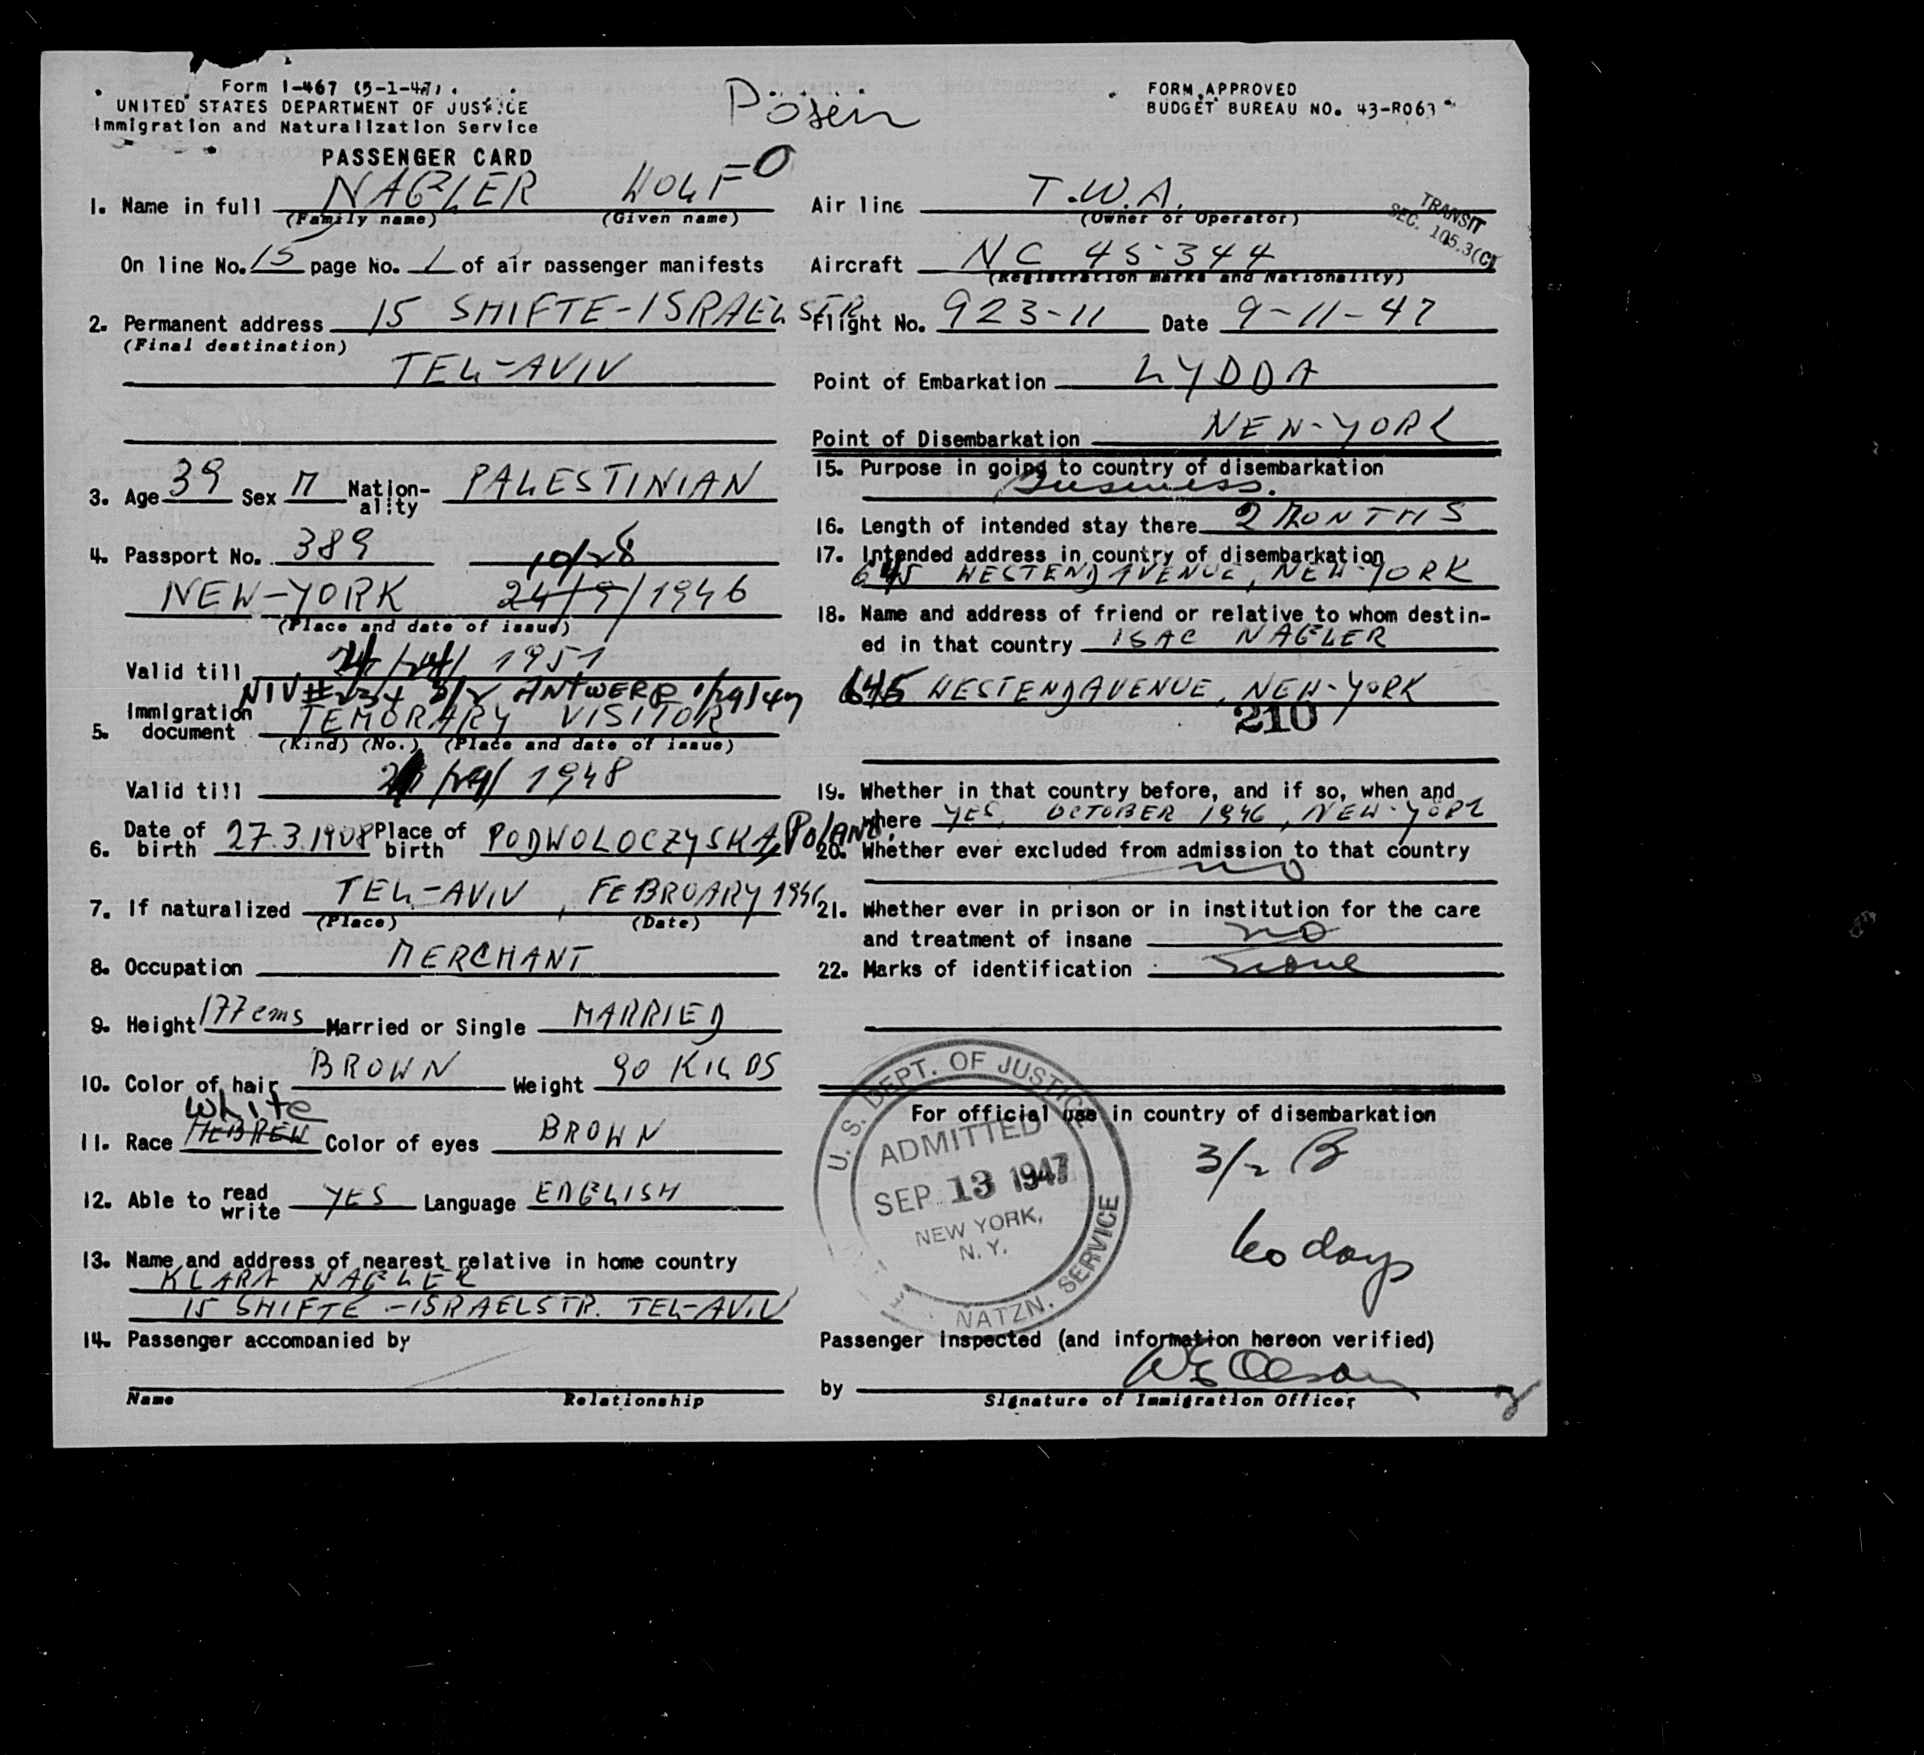 Form I-467 (5-1-47)
UNITED STATES DEPARTMENT OF JUSTICE
Immigration and Naturalization Service
PASSENGER CARD
FORM APPROVED
BUDGET BUREAU NO. 43-R063
1. Name in full NAGLER WOLF
(Family name) (Given name)
On line No. 15 page No. 1 of air passenger manifests
2. Permanent address 15 SHIFTE-ISRAEL STR.
(Final destination)
TEL-AVIV
3. Age 39 Sex M Nation-ality PALESTINIAN
4. Passport No. 389 10/28
NEW-YORK 24/9/1946
(Place and date of issue)
Valid till 1951
NIV # 3/2 ANTWERP 1/29/47
5. Immigration document TEMORARY VISITOR
(Kind) (No.) (Place and date of issue)
Valid till 1948
6. Date of birth 27.3.1908 Place of birth PODWOLOCZYSKA, POLAND.
7. If naturalized TEL-AVIV, FEBRUARY 1946
(Place) (Date)
8. Occupation MERCHANT
9. Height 177 cms Married or Single MARRIED
10. Color of hair BROWN Weight 90 KILOS
White
11. Race HEBREW Color of eyes BROWN
12. Able to read write YES Language ENGLISH
13. Name and address of nearest relative in home country
KLARA NAGLER
15 SHIFTE-ISRAELSTR. TEL-AVIV
14. Passenger accompanied by
Name Relationship
Air line T.W.A.
(Owner or Operator)
TRANSIT
SEC. 105.3(C)
Aircraft NC 45-344
(Registration marks and Nationality)
Flight No. 923-11 Date 9-11-47
Point of Embarkation LYDDA
Point of Disembarkation NEW-YORK
15. Purpose in going to country of disembarkation
business.
16. Length of intended stay there 2 MONTHS
17. Intended address in country of disembarkation
645 WESTEND AVENUE, NEW-YORK
18. Name and address of friend or relative to whom destin-
ed in that country ISAC NAGLER
645 WESTEND AVENUE, NEW-YORK
210
19. Whether in that country before, and if so, when and
where YES, OCTOBER 1946, NEW-YORK
20. Whether ever excluded from admission to that country
no
21. Whether ever in prison or in institution for the care
and treatment of insane no
22. Marks of identification none
For official use in country of disembarkation
U. S. DEPT. OF JUSTICE
ADMITTED
SEP 13 1947
NEW YORK,
N. Y.
NATZN. SERVICE
3/2 B
60 days
Passenger Inspected (and information hereon verified)
by
Signature of Immigration Officer